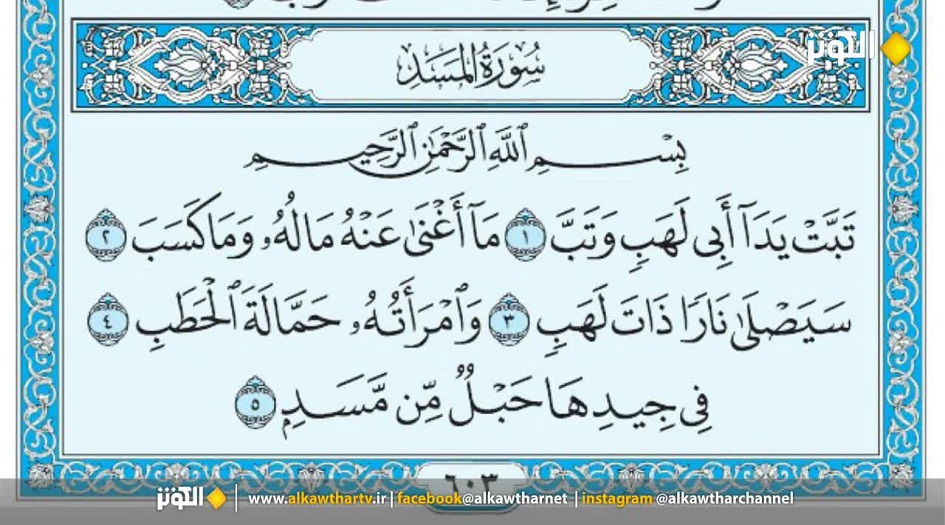 الكوثر
سُورَةُ المَسَدِ
بِسْمِ ٱللَّهِ ٱلرَّحْمَٰنِ ٱلرَّحِيمِ
تَبَّتْ يَدَآ أَبِى لَهَبٍ وَتَبَّ ١ مَآ أَغْنَىٰ عَنْهُ مَالُهُۥ وَمَا كَسَبَ ٢
سَيَصْلَىٰ نَارًا ذَاتَ لَهَبٍ ٣ وَٱمْرَأَتُهُۥ حَمَّالَةَ ٱلْحَطَبِ ٤
فِى جِيدِهَا حَبْلٌ مِّن مَّسَدٍۭ ٥
٦٠٣
الكوثر | www.alkawthartv.ir | facebook@alkawtharnet | instagram @alkawtharchannel